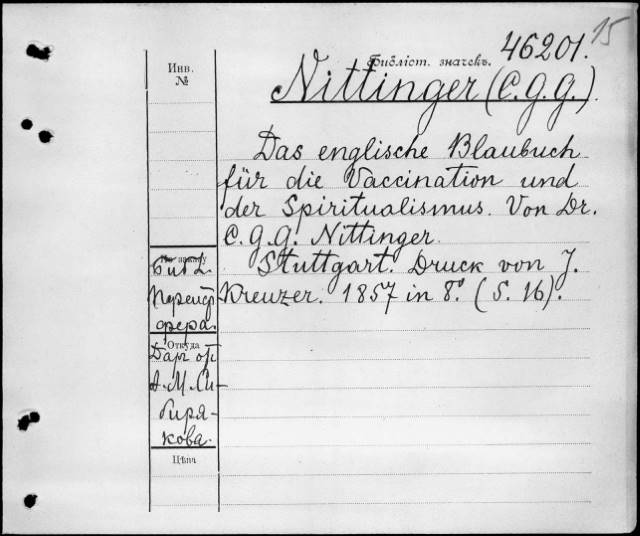 46201. 15
Библіот. значекъ.
Инв.
№
Nittinger (C. G. G.).
Das englische Blaubuch
für die Vaccination und
der Spiritualismus. Von Dr.
C. G. G. Nittinger.
Stuttgart. Druck von J.
Kreuzer. 1857 in 8º. (S. 16).
По заказу
Библ.
Откуда
Даръ от
А. М. Си-
биря-
кова.
Цѣна